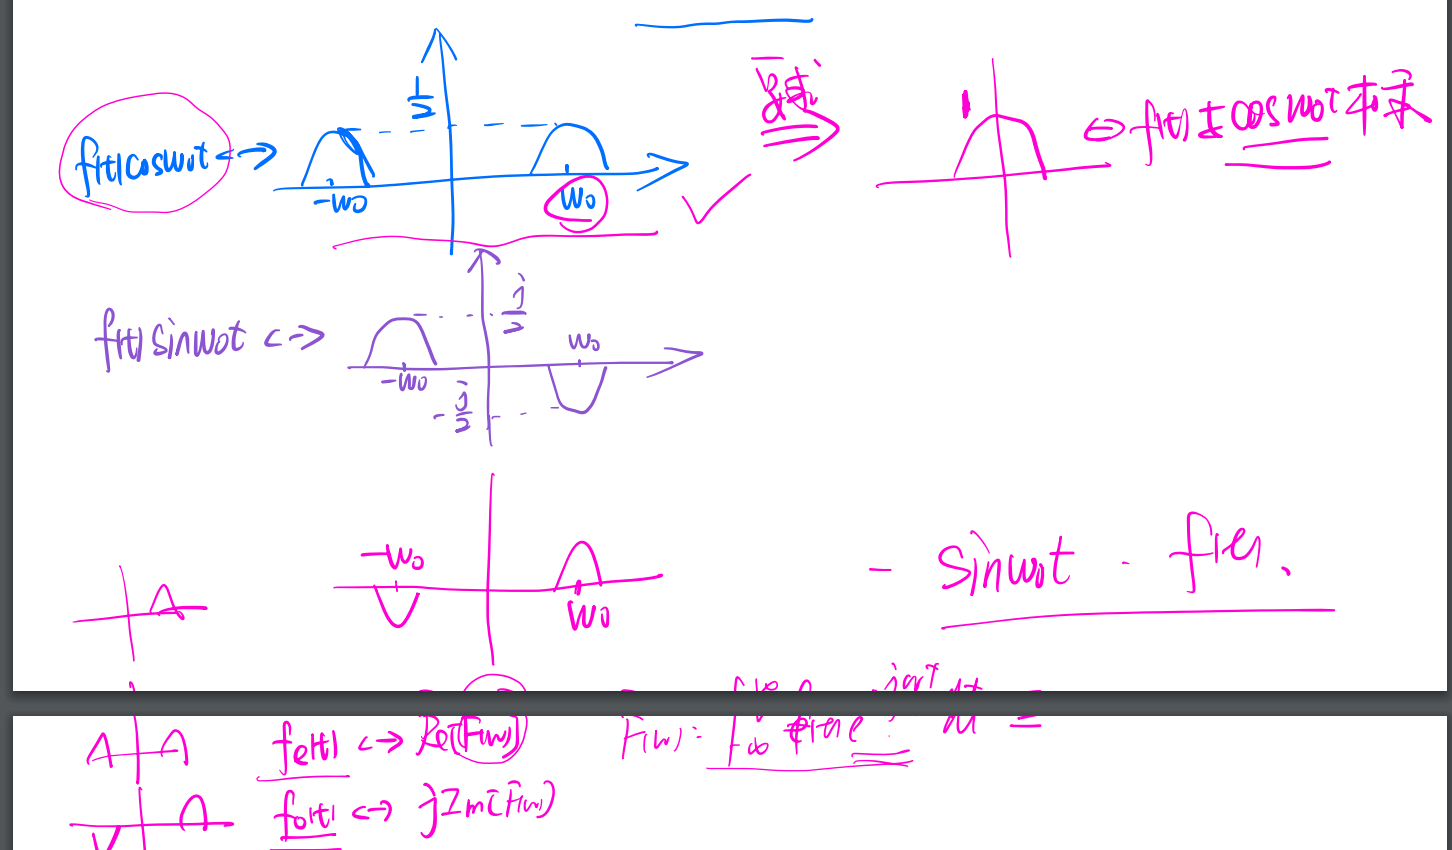 1/2
f(t)cosw₀t <->
-w₀
w₀
1
<-> f(t)±cosw₀t
f(t)sinw₀t <->
j/2
-w₀
w₀
-j/2
-w₀
w₀
- sinw₀t · f(t).
fe(t) <-> Re(F(w))
F(w) =
dt =
fo(t) <-> jIm(F(w))